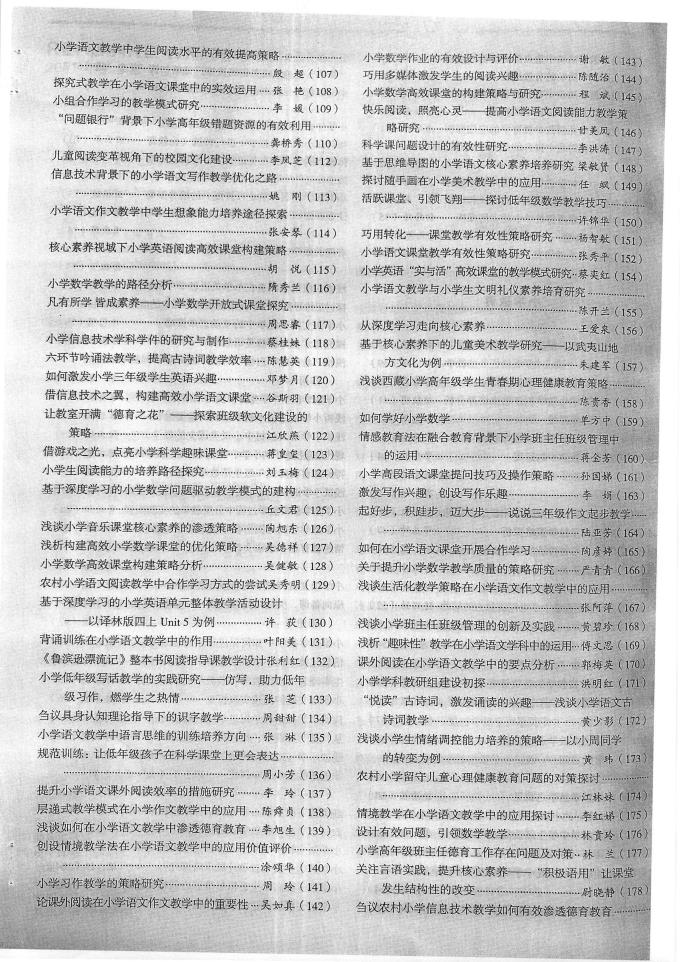 小学语文教学中学生阅读水平的有效提高策略
殷 超(107)
探究式教学在小学语文课堂中的实效运用 张 艳(108)
小组合作学习的教学模式研究 李 媛(109)
“问题银行”背景下小学高年级错题资源的有效利用
龚桥秀(110)
儿童阅读变革视角下的校园文化建设 李凤芝(112)
信息技术背景下的小学语文写作教学优化之路
姚 刚(113)
小学语文作文教学中学生想象能力培养途径探索
张安琴(114)
核心素养视域下小学英语阅读高效课堂构建策略
胡 悦(115)
小学数学教学的路径分析 隋秀兰(116)
凡有所学 皆成素养——小学数学开放式课堂探究
周思睿(117)
小学信息技术学科学件的研究与制作 蔡桂妹(118)
六环节吟诵法教学,提高古诗词教学效率 陈慧英(119)
如何激发小学三年级学生英语兴趣 邓梦月(120)
借信息技术之翼,构建高效小学语文课堂 谷斯羽(121)
让教室开满“德育之花”——探索班级软文化建设的
策略 江欣燕(122)
借游戏之光,点亮小学科学趣味课堂 蒋皇玺(123)
小学生阅读能力的培养路径探究 刘玉梅(124)
基于深度学习的小学数学问题驱动教学模式的建构
丘文君(125)
浅谈小学音乐课堂核心素养的渗透策略 陶旭东(126)
浅析构建高效小学数学课堂的优化策略 吴德祥(127)
小学数学高效课堂构建策略分析 吴健敏(128)
农村小学语文阅读教学中合作学习方式的尝试 吴秀明(129)
基于深度学习的小学英语单元整体教学活动设计
——以译林版四上 Unit 5 为例 许 荻(130)
背诵训练在小学语文教学中的作用 叶阳美(131)
《鲁滨逊漂流记》整本书阅读指导课教学设计 张利红(132)
小学低年级写话教学的实践研究——仿写,助力低年
级习作,燃学生之热情 张 芝(133)
刍议具身认知理论指导下的识字教学 周甜甜(134)
小学语文教学中语言思维的训练培养方向 张 淋(135)
规范训练:让低年级孩子在科学课堂上更会表达
周小芳(136)
提升小学语文课外阅读效率的措施研究 李 玲(137)
层递式教学模式在小学作文教学中的应用 陈舜贞(138)
浅谈如何在小学语文教学中渗透德育教育 李旭生(139)
创设情境教学法在小学语文教学中的应用价值评价
涂颂华(140)
小学习作教学的策略研究 周 玲(141)
论课外阅读在小学语文作文教学中的重要性 吴如真(142)
小学数学作业的有效设计与评价 谢 敏(143)
巧用多媒体激发学生的阅读兴趣 陈随治(144)
小学数学高效课堂的构建策略与研究 程 斌(145)
快乐阅读,照亮心灵——提高小学语文阅读能力教学策
略研究 甘美凤(146)
科学课问题设计的有效性研究 李洪涛(147)
基于思维导图的小学语文核心素养培养研究 梁敏贤(148)
探讨随手画在小学美术教学中的应用 任 飒(149)
活跃课堂、引领飞翔——探讨低年级数学教学技巧
许锦华(150)
巧用转化——课堂教学有效性策略研究 杨智敏(151)
小学语文课堂教学有效性策略研究 张秀平(152)
小学英语“实与活”高效课堂的教学模式研究 蔡奕红(154)
小学语文教学与小学生文明礼仪素养培育研究
陈开兰(155)
从深度学习走向核心素养 王爱泉(156)
基于核心素养下的儿童美术教学研究——以武夷山地
方文化为例 朱建军(157)
浅谈西藏小学高年级学生青春期心理健康教育策略
陈贵香(158)
如何学好小学数学 单方中(159)
情感教育法在融合教育背景下小学班主任班级管理中
的运用 蒋全芳(160)
小学高段语文课堂提问技巧及操作策略 孙国娣(161)
激发写作兴趣,创设写作乐趣 李 娟(163)
起好步,积跬步,迈大步——说说三年级作文起步教学
陆亚芳(164)
如何在小学语文课堂开展合作学习 陶彦婷(165)
关于提升小学数学教学质量的策略研究 严青青(166)
浅谈生活化教学策略在小学语文作文教学中的应用
张阿萍(167)
浅谈小学班主任班级管理的创新及实践 黄碧珍(168)
浅析“趣味性”教学在小学语文学科中的运用 傅文思(169)
课外阅读在小学语文教学中的要点分析 郭梅英(170)
小学学科教研组建设初探 洪明红(171)
“悦读”古诗词,激发诵读的兴趣——浅谈小学语文古
诗词教学 黄少影(172)
浅谈小学生情绪调控能力培养的策略——以小周同学
的转变为例 黄 玮(173)
农村小学留守儿童心理健康教育问题的对策探讨
江林妹(174)
情境教学在小学语文教学中的应用探讨 李红娣(175)
设计有效问题,引领数学教学 林贵玲(176)
小学高年级班主任德育工作存在问题及对策 林 兰(177)
关注言语实践,提升核心素养——“积极语用”让课堂
发生结构性的改变 尉晓静(178)
刍议农村小学信息技术教学如何有效渗透德育教育